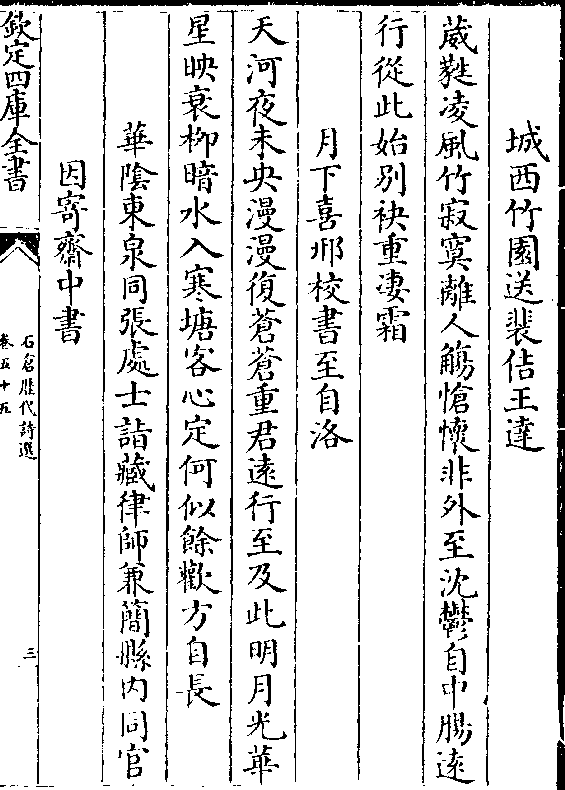 城西竹園送裴佶王達
葳蕤凌風竹寂寞離人觴愴懷非外至沈鬱自中腸遠
行從此始别袂重凄霜
月下喜邢校書至自洛
天河夜未央漫漫復蒼蒼重君遠行至及此明月光華
星映衰柳暗水入寒塘客心定何似餘歡方自長
華陰東泉同張處士詣藏律師兼簡縣内同官
因寄齋中書
欽定四庫全書
石倉歷代詩選
卷五十五
三